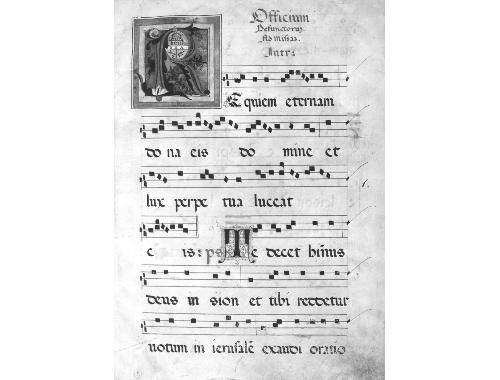 Officium
Defunctorum
Ad missa.
Intr.
Requiem eternam
do na eis do mine et
lux perpe tua luceat
e is: ps Te decet himnus
deus in sion et tibi reddetur
votum in ierusalē exaudi oratio